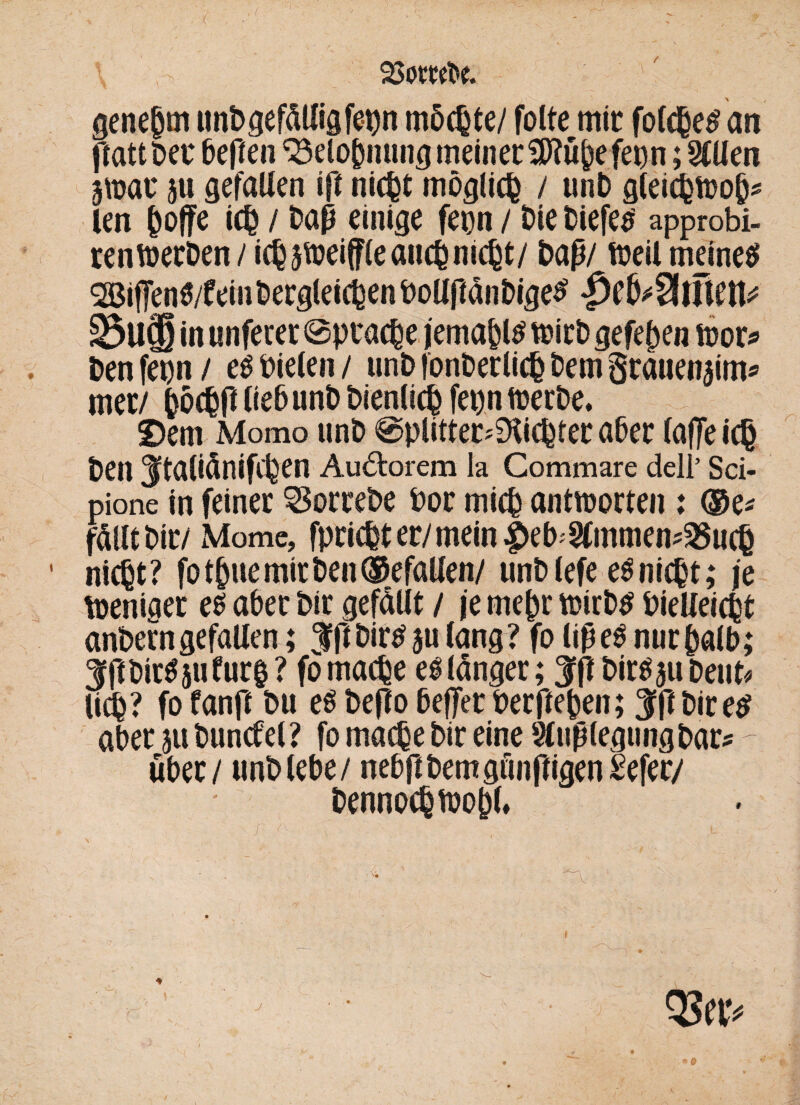 Vorrede.
genehm und gefällig seyn möchte/ solte mir solches an
statt der besten Belohnung meiner Mühe seyn; Allen
zwar zu gefallen ist nicht möglich / und gleichwoh-
len hoffe ich / daß einige seyn / die dieses approbi-
ren werden / ich zweiffle auch nicht/ daß/ weil meines
Wissens/kein dergleichen vollständiges Heb-Amen-
Buch in unserer Sprache jemahls wird gesehen wor-
den seyn / es vielen / und sonderlich dem Frauenzim-
mer/ höchst lieb und dienlich seyn werde.
Dem Momo und Splitter-Richter aber lasse ich
den Italiänischen Auctorem la Commare dell' Sci-
pione in seiner Vorrede vor mich antworten : Ge-
fällt dir/ Mome, spricht er/ mein Heb-Ammen-Buch
nicht? so thue mir den Gefallen/ und lese es nicht; je
weniger es aber dir gefällt / je mehr wirds vielleicht
andern gefallen; Ist dirs zu lang? so liß es nur halb;
Ist dirs zu kurtz ? so mache es länger; Ist dirs zu deut-
lich? so kanst du es desto besser verstehen; Ist dir es
aber zu dunckel? so mache dir eine Außlegung dar-
über / und lebe/ nebst dem günstigen Leser/
dennoch wohl.
Ver-